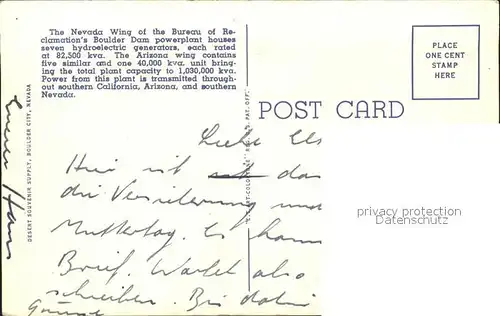 The Nevada Wing of the Bureau of Re-
clamation's Boulder Dam powerplant houses
seven hydroelectric generators, each rated
at 82,500 kva. The Arizona wing contains
five similar and one 40,000 kva. unit bring-
ing the total plant capacity to 1,030,000 kva.
Power from this plant is transmitted through-
out southern California, Arizona, and southern
Nevada.
PLACE
ONE CENT
STAMP
HERE
POST CARD
DESERT SOUVENIR SUPPLY, BOULDER CITY, NEVADA
REG. U.S. PAT. OFF.
Liebe
Hier ist das
die und
Muttertag. Es kann
Brief. Wartet also
schreiben. Bis dahin
Grüsse
Euer Hans
privacy protection
Datenschutz